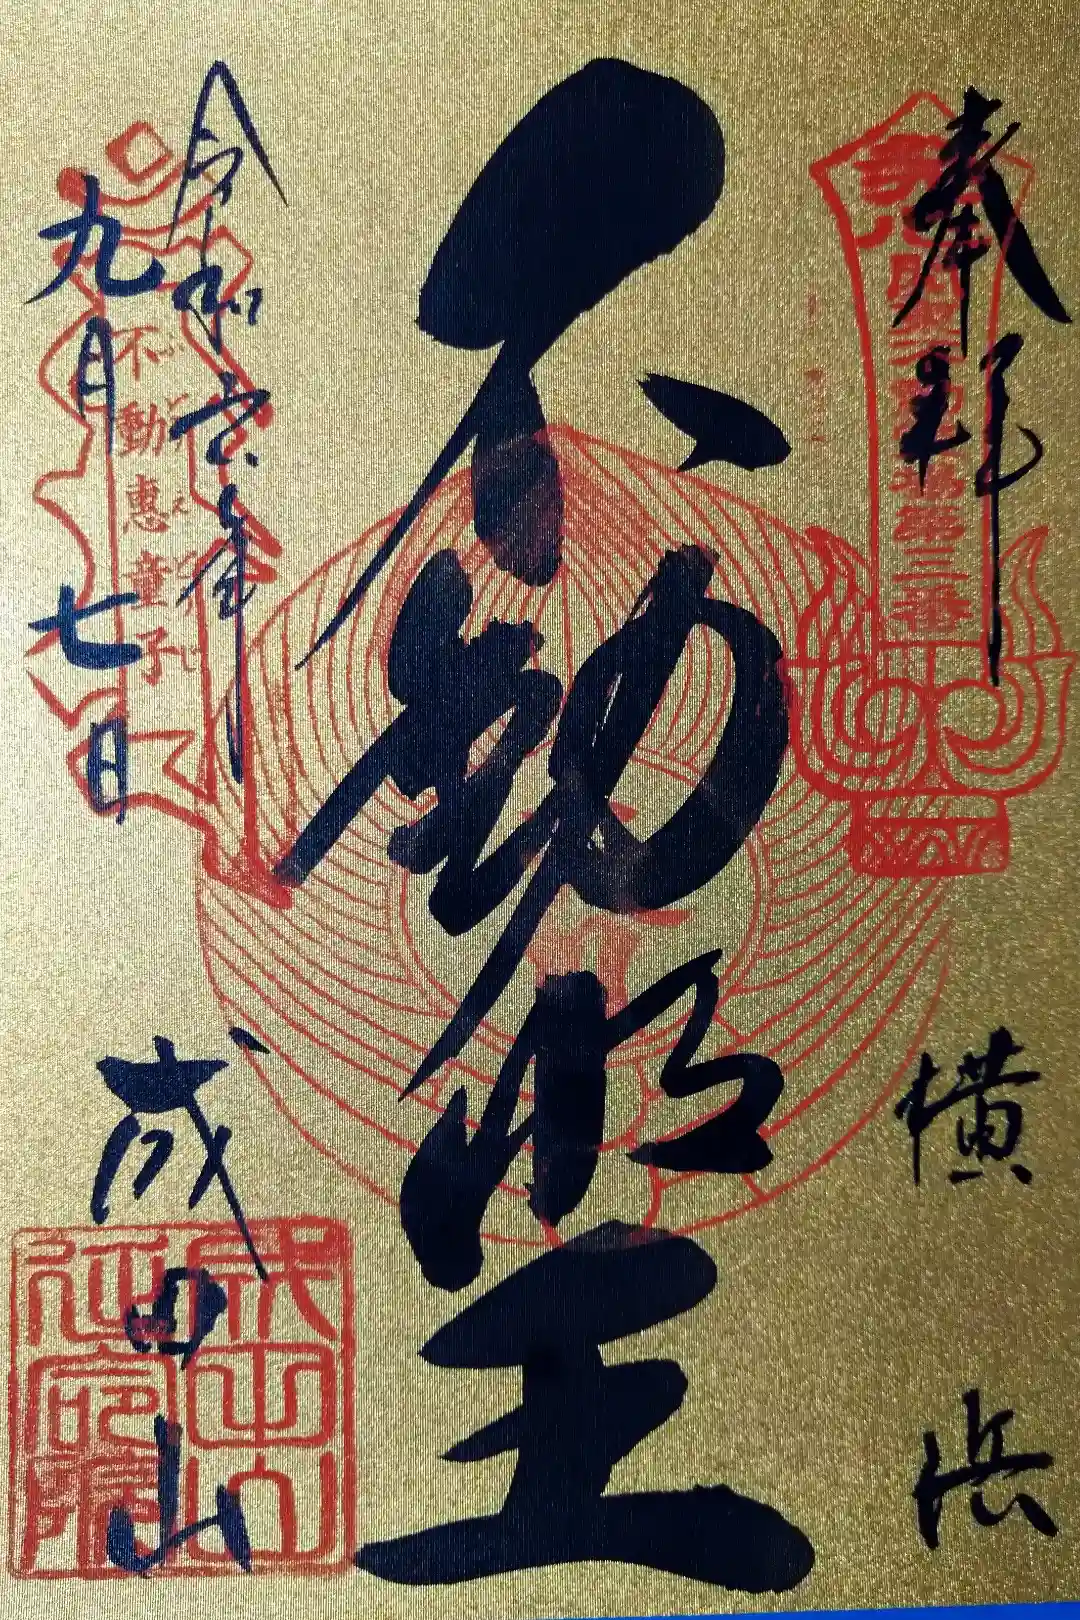 奉拝
霊場第三番
横浜
不動明王
令和六年
九月七日
不動惠童子
成田山
成田山
延命院